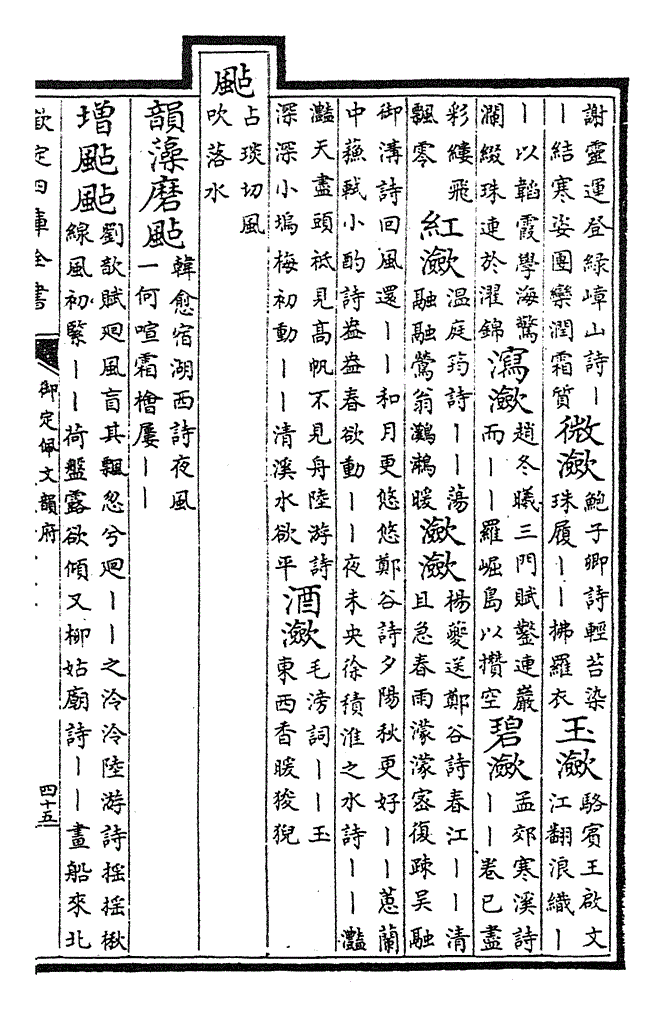 謝靈運登綠嶂山詩丨丨結寒姿團欒潤霜質 微瀲 鮑子卿詩輕苔染珠履丨丨拂羅衣 玉瀲 駱賓王啟文江翻浪織丨
丨以韜霞學海驚瀾綴珠連於濯錦 瀉瀲 趙冬曦三門賦鑿連巖而丨丨羅崛島以攢空 碧瀲 孟郊寒溪詩丨丨卷已盡
彩縷飛飄零 紅瀲 溫庭筠詩丨丨蕩融融鶯翁鸂鶒暖 瀲瀲 楊夔送鄭谷詩春江丨丨清且急春雨濛濛密復疎吳融
御溝詩回風還丨丨和月更悠悠鄭谷詩夕陽秋更好丨丨蕙蘭中蘇軾小酌詩盎盎春欲動丨丨夜未央徐積淮之水詩丨丨灩
灩天盡頭祗見高帆不見舟陸游詩深深小塢梅初動丨丨清溪水欲平 酒瀲 毛滂詞丨丨玉東西香暖狻猊
颭 占琰切風吹落水
韻藻磨颭 韓愈宿湖西詩夜風一何喧霜檜屢丨丨
增颭颭 劉歆賦迴風肓其飄忽兮迴丨丨之泠泠陸游詩搖搖楸線風初緊丨丨荷盤露欲傾又柳姑廟詩丨丨畫船來北
欽定四庫全書
御定佩文韻府
四十五